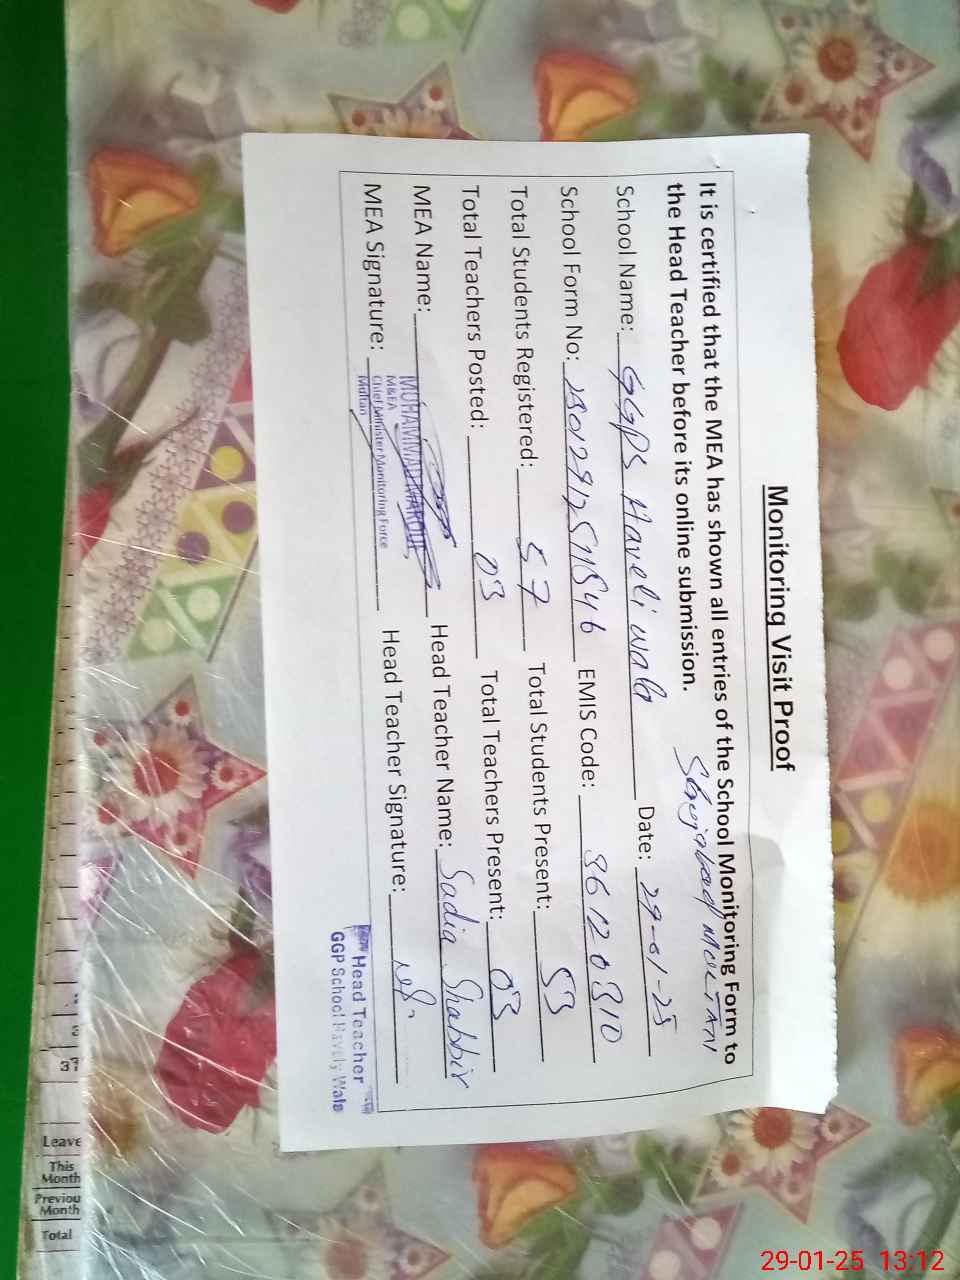 Monitoring Visit Proof
It is certified that the MEA has shown all entries of the School Monitoring Form to
the Head Teacher before its online submission. Shujabad MULTAN
School Name: GGPS Haveli wala Date: 29-01-25
School Form No: EMIS Code: 36120310
Total Students Registered: 57 Total Students Present: 53
Total Teachers Posted: 03 Total Teachers Present: 03
MEA Name: MUHAMMAD Head Teacher Name: Sadia Shabbir
M&EA
MEA Signature: Chief Minister Monitoring Force Head Teacher Signature:
Multan
Head Teacher
GGP School Havely Wala
37
Leave
This
Month
Previou
Month
Total
29-01-25 13:12